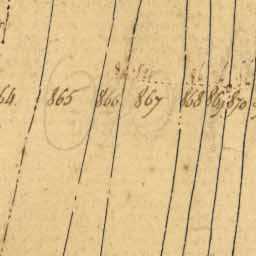 64 865 866 867 868 869 870